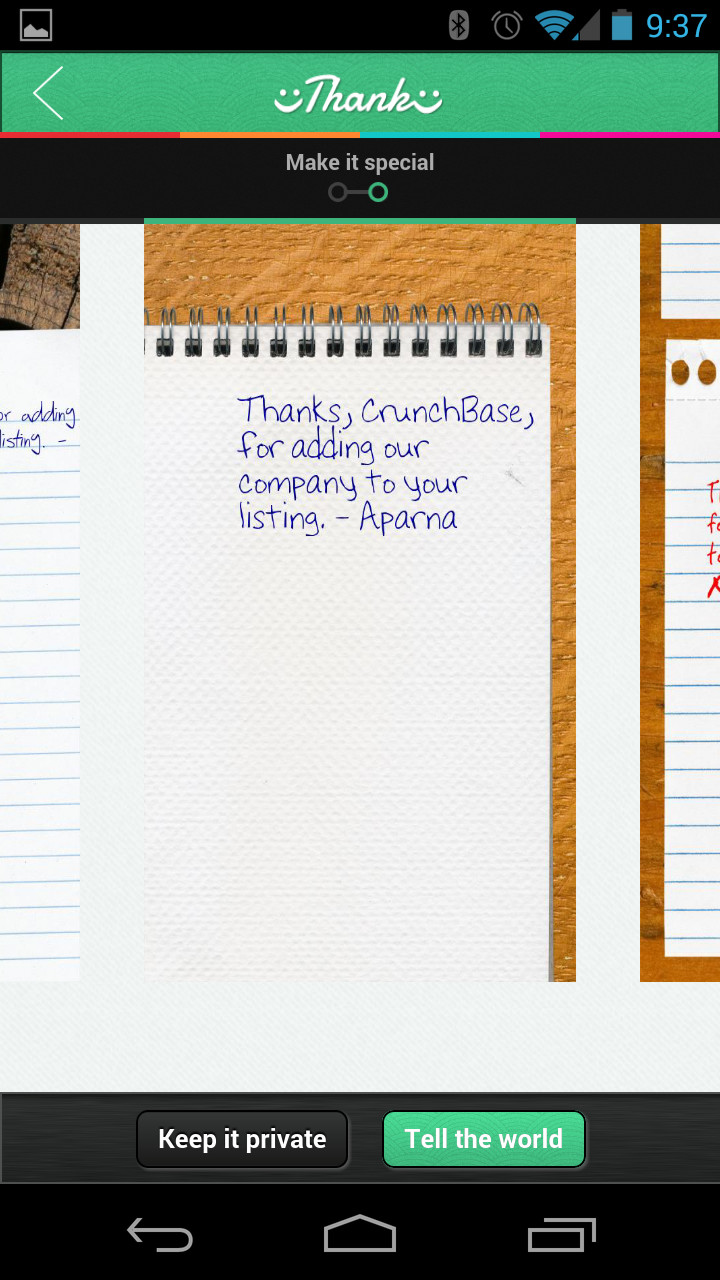 9:37
Thank
Make it special
or adding
listing. -
Thanks, CrunchBase,
for adding our
company to your
listing. - Aparna
Keep it private
Tell the world